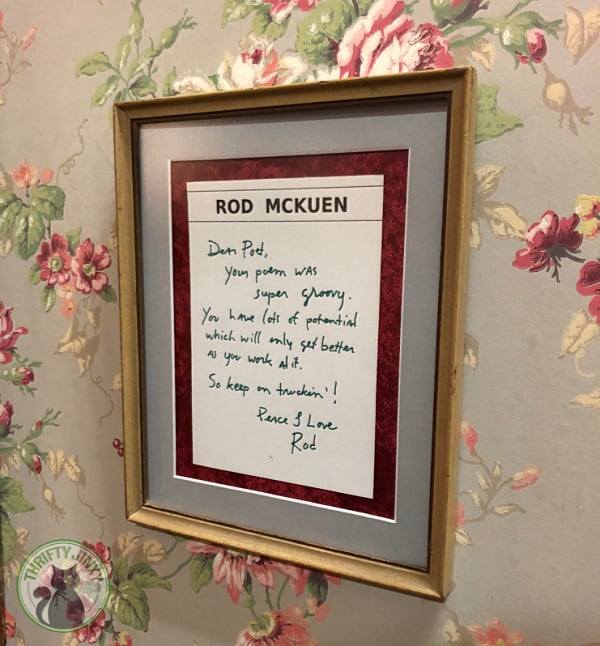 ROD MCKUEN
Dear Poet,
Your poem was
super groovy.
You have lots of potential
which will only get better
as you work at it.
So keep on truckin'!
Peace & Love
Rod
THRIFTY JINXY